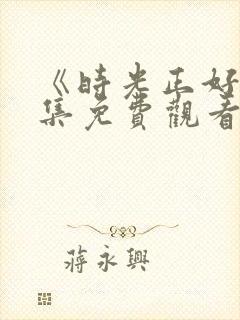 《時光正好
集免費觀看
蔣永興